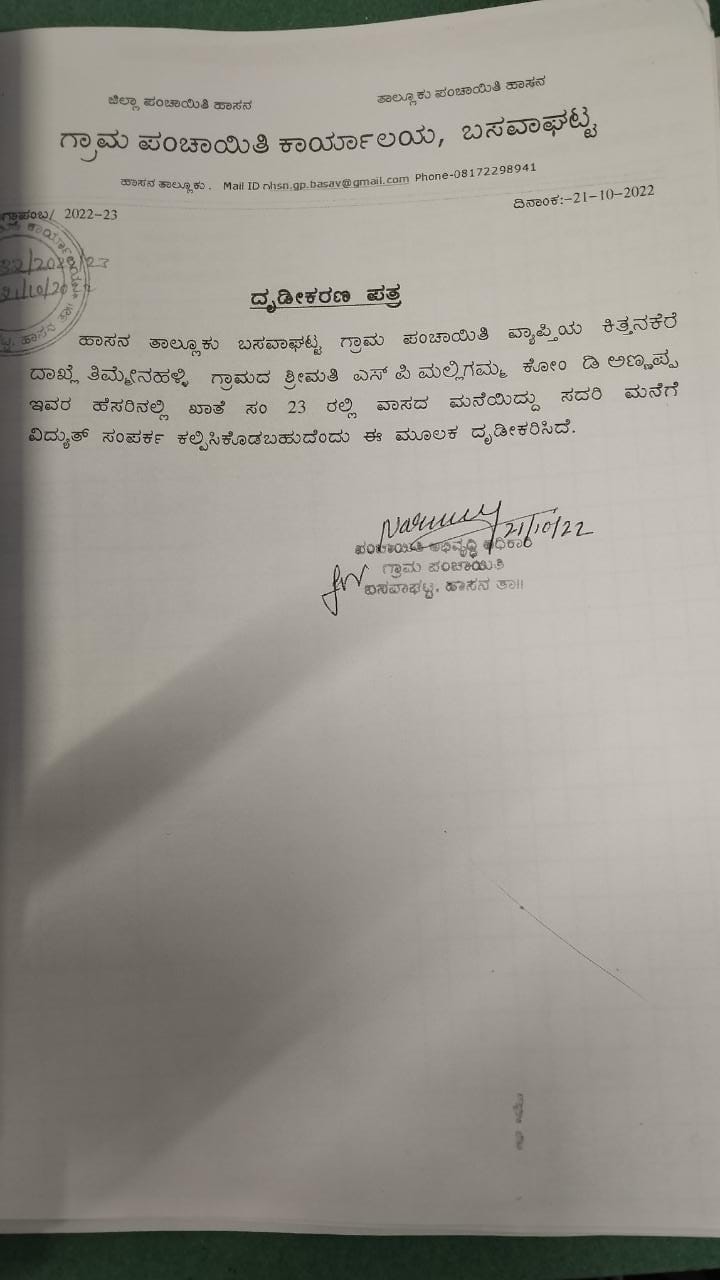 ಜಿಲ್ಲಾ ಪಂಚಾಯಿತಿ ಹಾಸನ ತಾಲ್ಲೂಕು ಪಂಚಾಯಿತಿ ಹಾಸನ
ಗ್ರಾಮ ಪಂಚಾಯಿತಿ ಕಾರ್ಯಾಲಯ, ಬಸವಾಘಟ್ಟ
ಹಾಸನ ತಾಲ್ಲೂಕು. Mail ID nhsn.gp.basav@gmail.com Phone-08172298941
ಗ್ರಾಪಂಬ/ 2022-23 ದಿನಾಂಕ:-21-10-2022
21/10/20
ದೃಡೀಕರಣ ಪತ್ರ
ಹಾಸನ ತಾಲ್ಲೂಕು ಬಸವಾಘಟ್ಟ ಗ್ರಾಮ ಪಂಚಾಯಿತಿ ವ್ಯಾಪ್ತಿಯ ಕಿತ್ತನಕೆರೆ
ದಾಖ್ಲೆ ತಿಮ್ಮೇನಹಳ್ಳಿ ಗ್ರಾಮದ ಶ್ರೀಮತಿ ಎಸ್ ಪಿ ಮಲ್ಲಿಗಮ್ಮ ಕೋಂ ಡಿ ಅಣ್ಣಪ್ಪ
ಇವರ ಹೆಸರಿನಲ್ಲಿ ಖಾತೆ ಸಂ 23 ರಲ್ಲಿ ವಾಸದ ಮನೆಯಿದ್ದು ಸದರಿ ಮನೆಗೆ
ವಿದ್ಯುತ್ ಸಂಪರ್ಕ ಕಲ್ಪಿಸಿಕೊಡಬಹುದೆಂದು ಈ ಮೂಲಕ ದೃಡೀಕರಿಸಿದೆ.
21/10/22
ಪಂಚಾಯಿತಿ ಅಭಿವೃದ್ಧಿ ಅಧಿಕಾರಿ
for ಗ್ರಾಮ ಪಂಚಾಯಿತಿ
ಬಸವಾಘಟ್ಟ, ಹಾಸನ ತಾ||